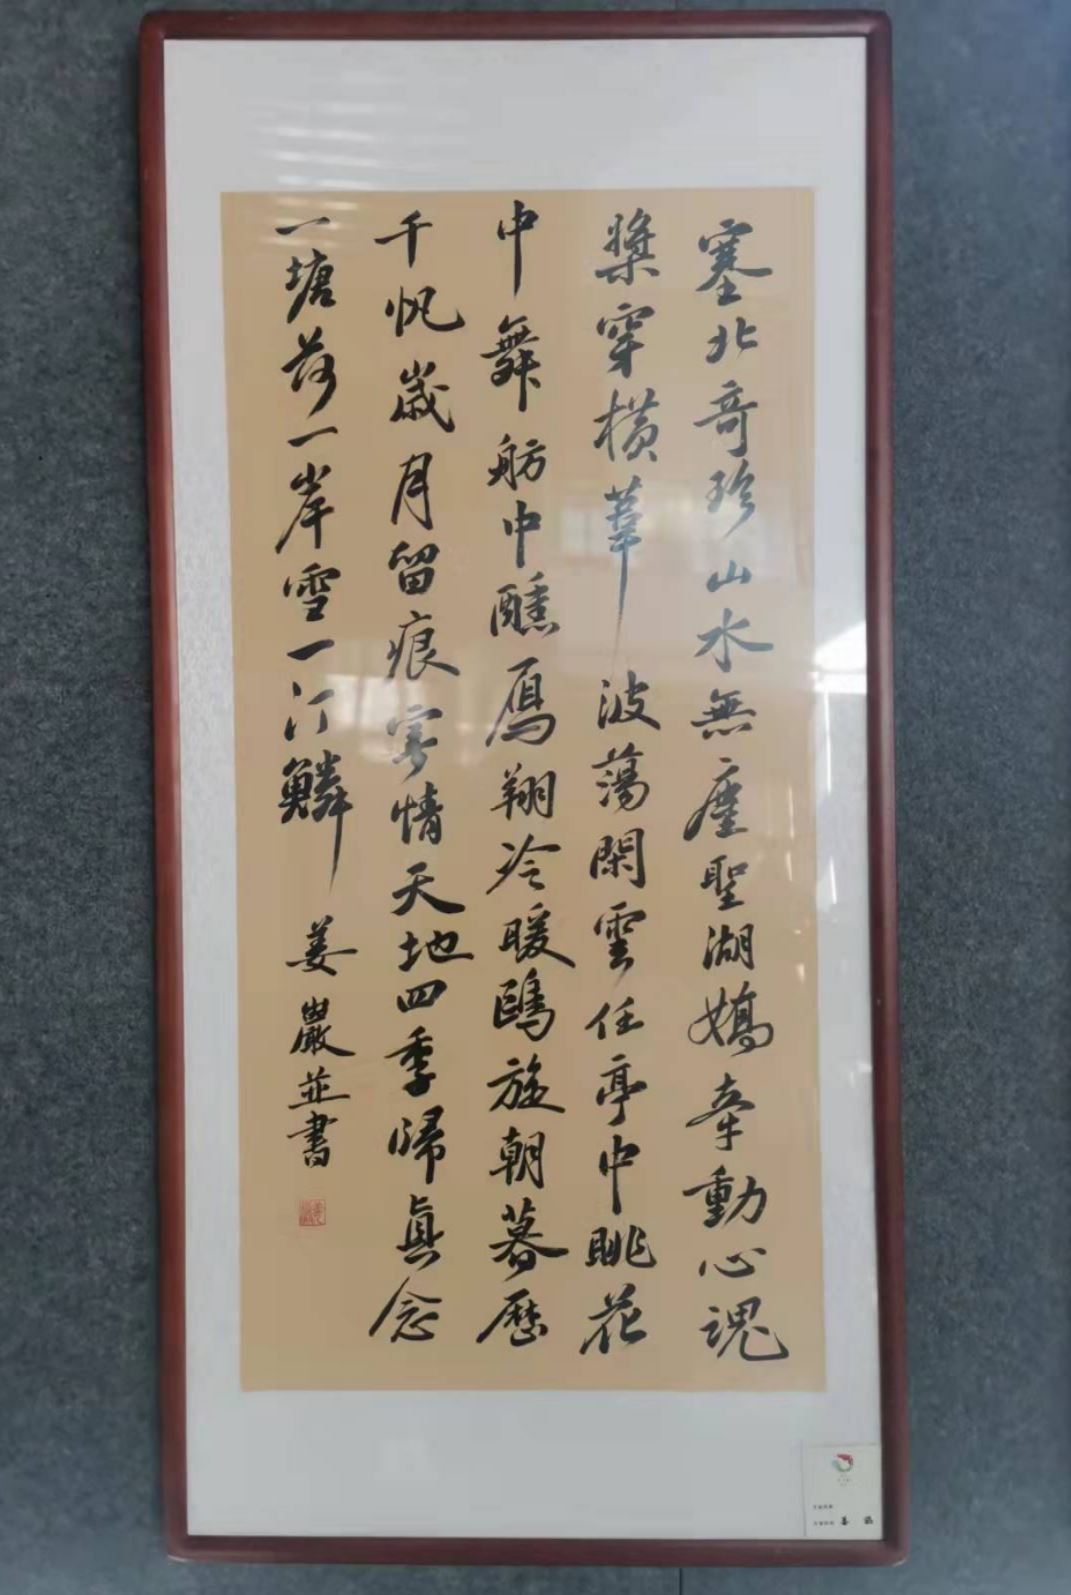 塞北奇珍山水無塵聖湖嬌牽動心魂
槳穿橫葦波蕩閑雲任亭中眺花
中舞舫中醺鳫翔冷暖鷗旋朝暮歷
千帆歲月留痕寄情天地四季歸真念
一塘荷一岸雪一汀鱗
姜巖並書